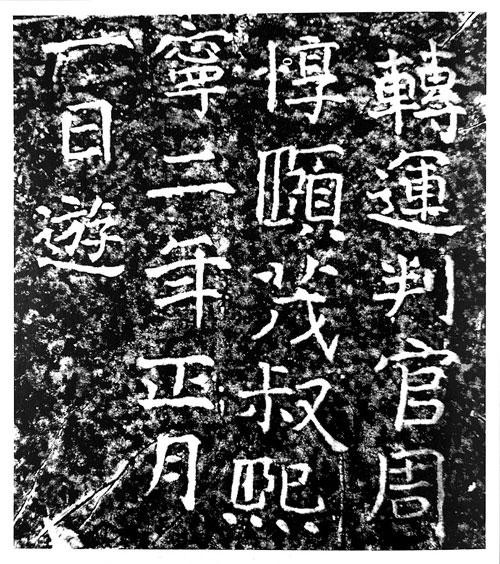 轉運判官周
惇頤茂叔熙
寧二年正月
一日遊